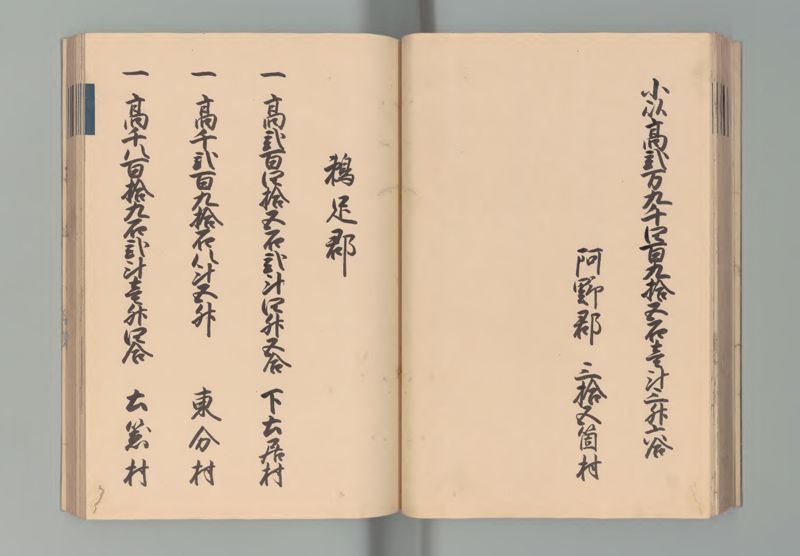 小以高弐万九千四百九拾五石壱斗三升六合
阿野郡 三拾五箇村
鵜足郡
一 高弐百四拾五石弐斗四升五合 下土居村
一 高千弐百九拾石八斗五升 東分村
一 高千八百拾九石弐斗壱升四合 土器村